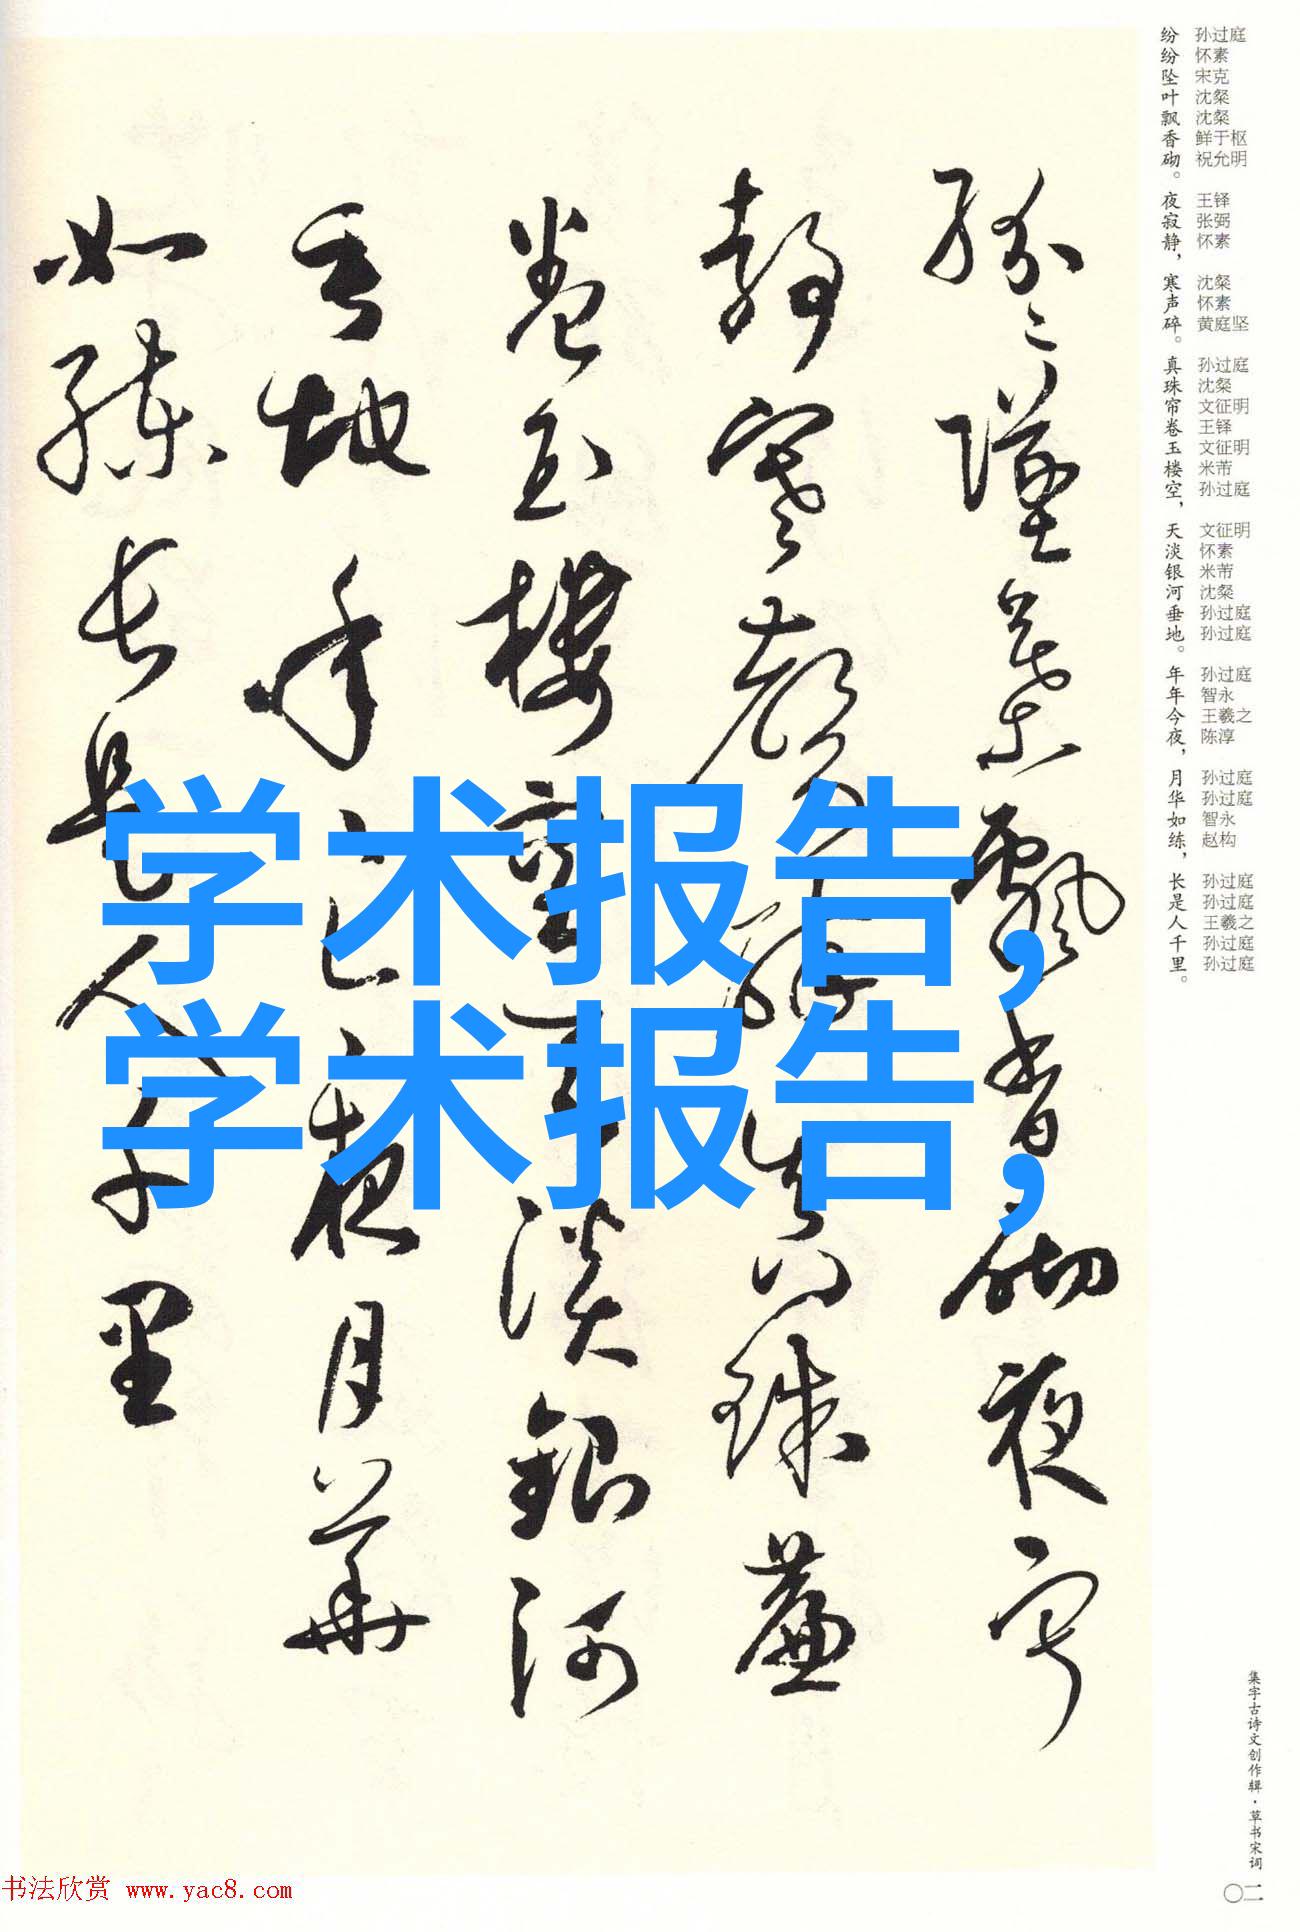 纷纷坠叶飘香砌。夜寂静，寒声碎。真珠帘卷玉楼空，天淡银河垂地。年年今夜，月华如练，长是人千里。
孙过庭
怀素
宋克
沈粲
沈粲
鲜于枢
祝允明
王铎
张弼
怀素
沈粲
怀素
黄庭坚
孙过庭
沈粲
文征明
王铎
文征明
米芾
孙过庭
文征明
怀素
米芾
沈粲
孙过庭
孙过庭
孙过庭
智永
王羲之
陈淳
孙过庭
孙过庭
智永
赵构
孙过庭
孙过庭
王羲之
孙过庭
孙过庭
纷〻坠叶飘香砌夜寂
静寒声碎真珠帘
卷玉楼空天淡银河
垂地年〻今夜月华
如练长是人千里
学术报告,
学术报告,
集字古诗文创作辑·草书宋词
〇二
书法欣赏 www.yac8.com